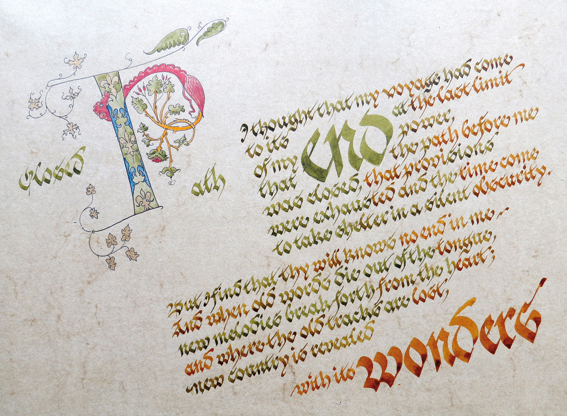 Closed Path
I thought that my voyage had come
to its end at the last limit
of my power,
that the path before me
was closed, that provisions
were exhausted and the time come
to take shelter in a silent obscurity.
But I find that thy will knows no end in me –
And when old words die out of the tongue,
new melodies break forth from the heart;
and where the old tracks are lost,
new country is revealed
with its wonders